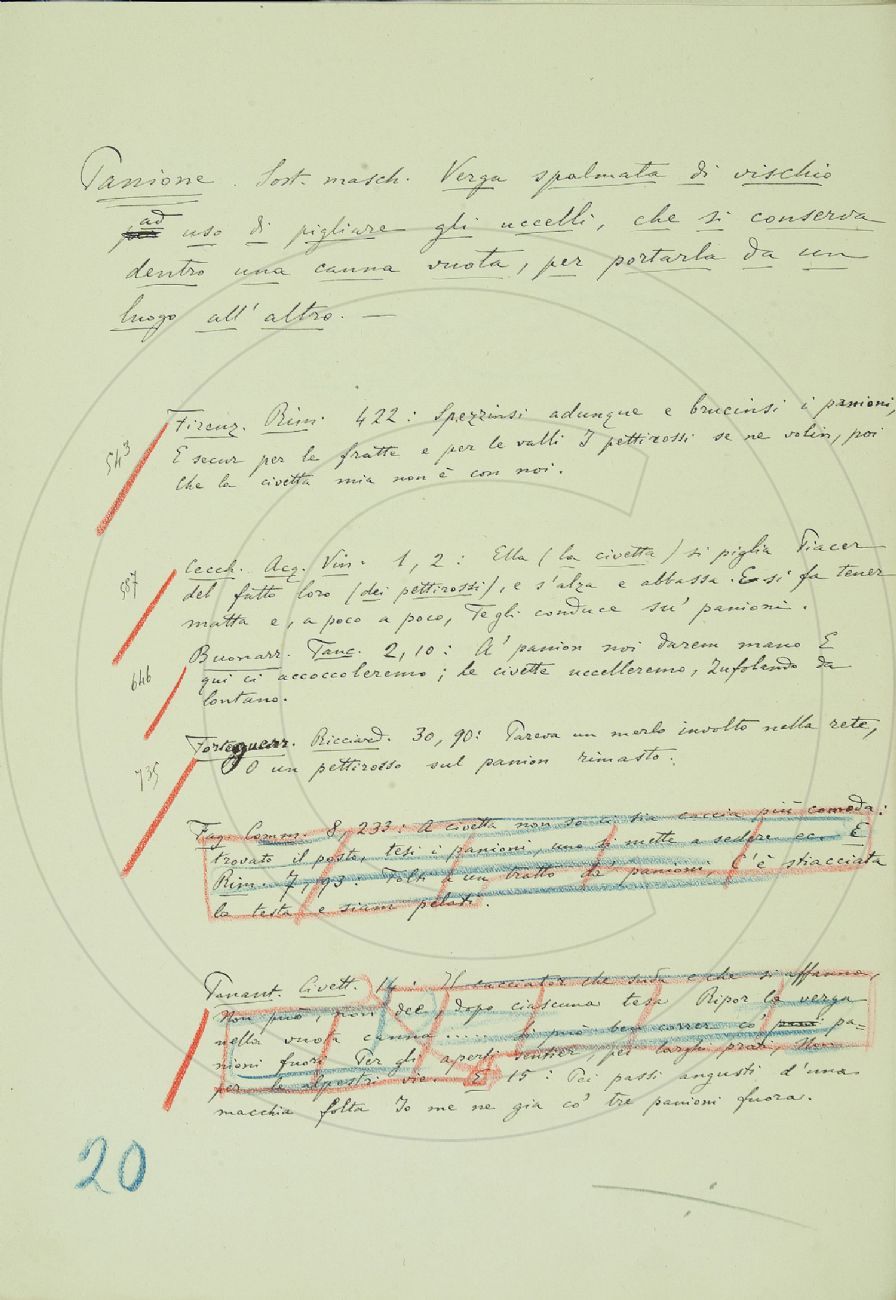 Panione. Sost. masch. Verga spalmata di vischio
per ad uso di pigliare gli uccelli, che si conserva
dentro una canna vuota, per portarla da un
luogo all' altro. —
543
Firenz. Rim. 422: Spezzinsi adunque e brucinsi i panioni,
E secur per le fratte e per le valli I pettirossi se ne volin, poi
Che la civetta mia non è con noi.
587
Cecch. Acq. Vin. 1, 2: Ella (la civetta) si piglia Piacer
del fatto loro (dei pettirossi), e s'alza e abbassa. E si fa tener
matta e, a poco a poco, Te gli conduce su' panioni.
646
Buonarr. Tanc. 2, 10: A' panion noi darem mano E
qui ci accoccoleremo; le civette uccelleremo, Zufolando da
lontano.
735
Forteguerr. Ricciard. 30, 90: Pareva un merlo involto nella rete,
O un pettirosso sul panion rimasto.
Fag. Comm. 8, 233: A civetta non so ci sia caccia più comoda:
trovato il posto, tesi i panioni, uno si mette a sedere ec. E
Rim. 7, 93: Tolti a un tratto da' panioni, C'è stiacciata
la testa e siam pelati.
Panant. Civett. 14: Il cacciator che suda e che si affanna,
Non può, non dee, dopo ciascuna tesa Ripor la verga
nella vuota canna..... Si può ben correr co' pani pa=
nioni fuori Per gli aperti sentier, pei larghi prati, Non
per le alpestri vie. E 15: Pei passi angusti d'una
macchia folta Io me ne gia co' tre panioni fuora.
20